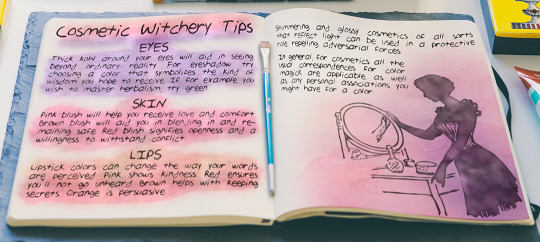 Cosmetic Witchery Tips
EYES
Thick kohl around your eyes will aid in seeing
beyond ordinary reality For eyeshadow try
choosing a color that symbolizes the kind of
wisdom you hope to receive If for example you
wish to master herbalism, try green
SKIN
Pink blush will help you receive love and comfort
Brown blush will aid you in blending in and re-
maining safe Red blush signifies openness and a
willingness to withstand conflict
LIPS
Lipstick colors can change the way your words
are perceived Pink shows kindness Red ensures
you'll not go unheard Brown helps with keeping
secrets Orange is persuasive
Shimmering and glossy cosmetics of all sorts
that reflect light can be used in a protective
role repelling adversarial forces
In general for cosmetics all the
usual correspondences for color
magick are applicable, as well
as any personal associations you
might have for a color